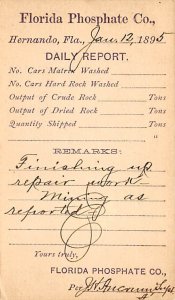 Florida Phosphate Co.,
Hernando, Fla., Jan. 12, 1895
DAILY REPORT.
No. Cars Matrix Washed
No. Cars Hard Rock Washed
Output of Crude Rock Tons
Output of Dried Rock Tons
Quantity Shipped " Tons
REMARKS:
Finishing up
repair work.
Mining as
reported
Yours truly,
FLORIDA PHOSPHATE CO.,
Per